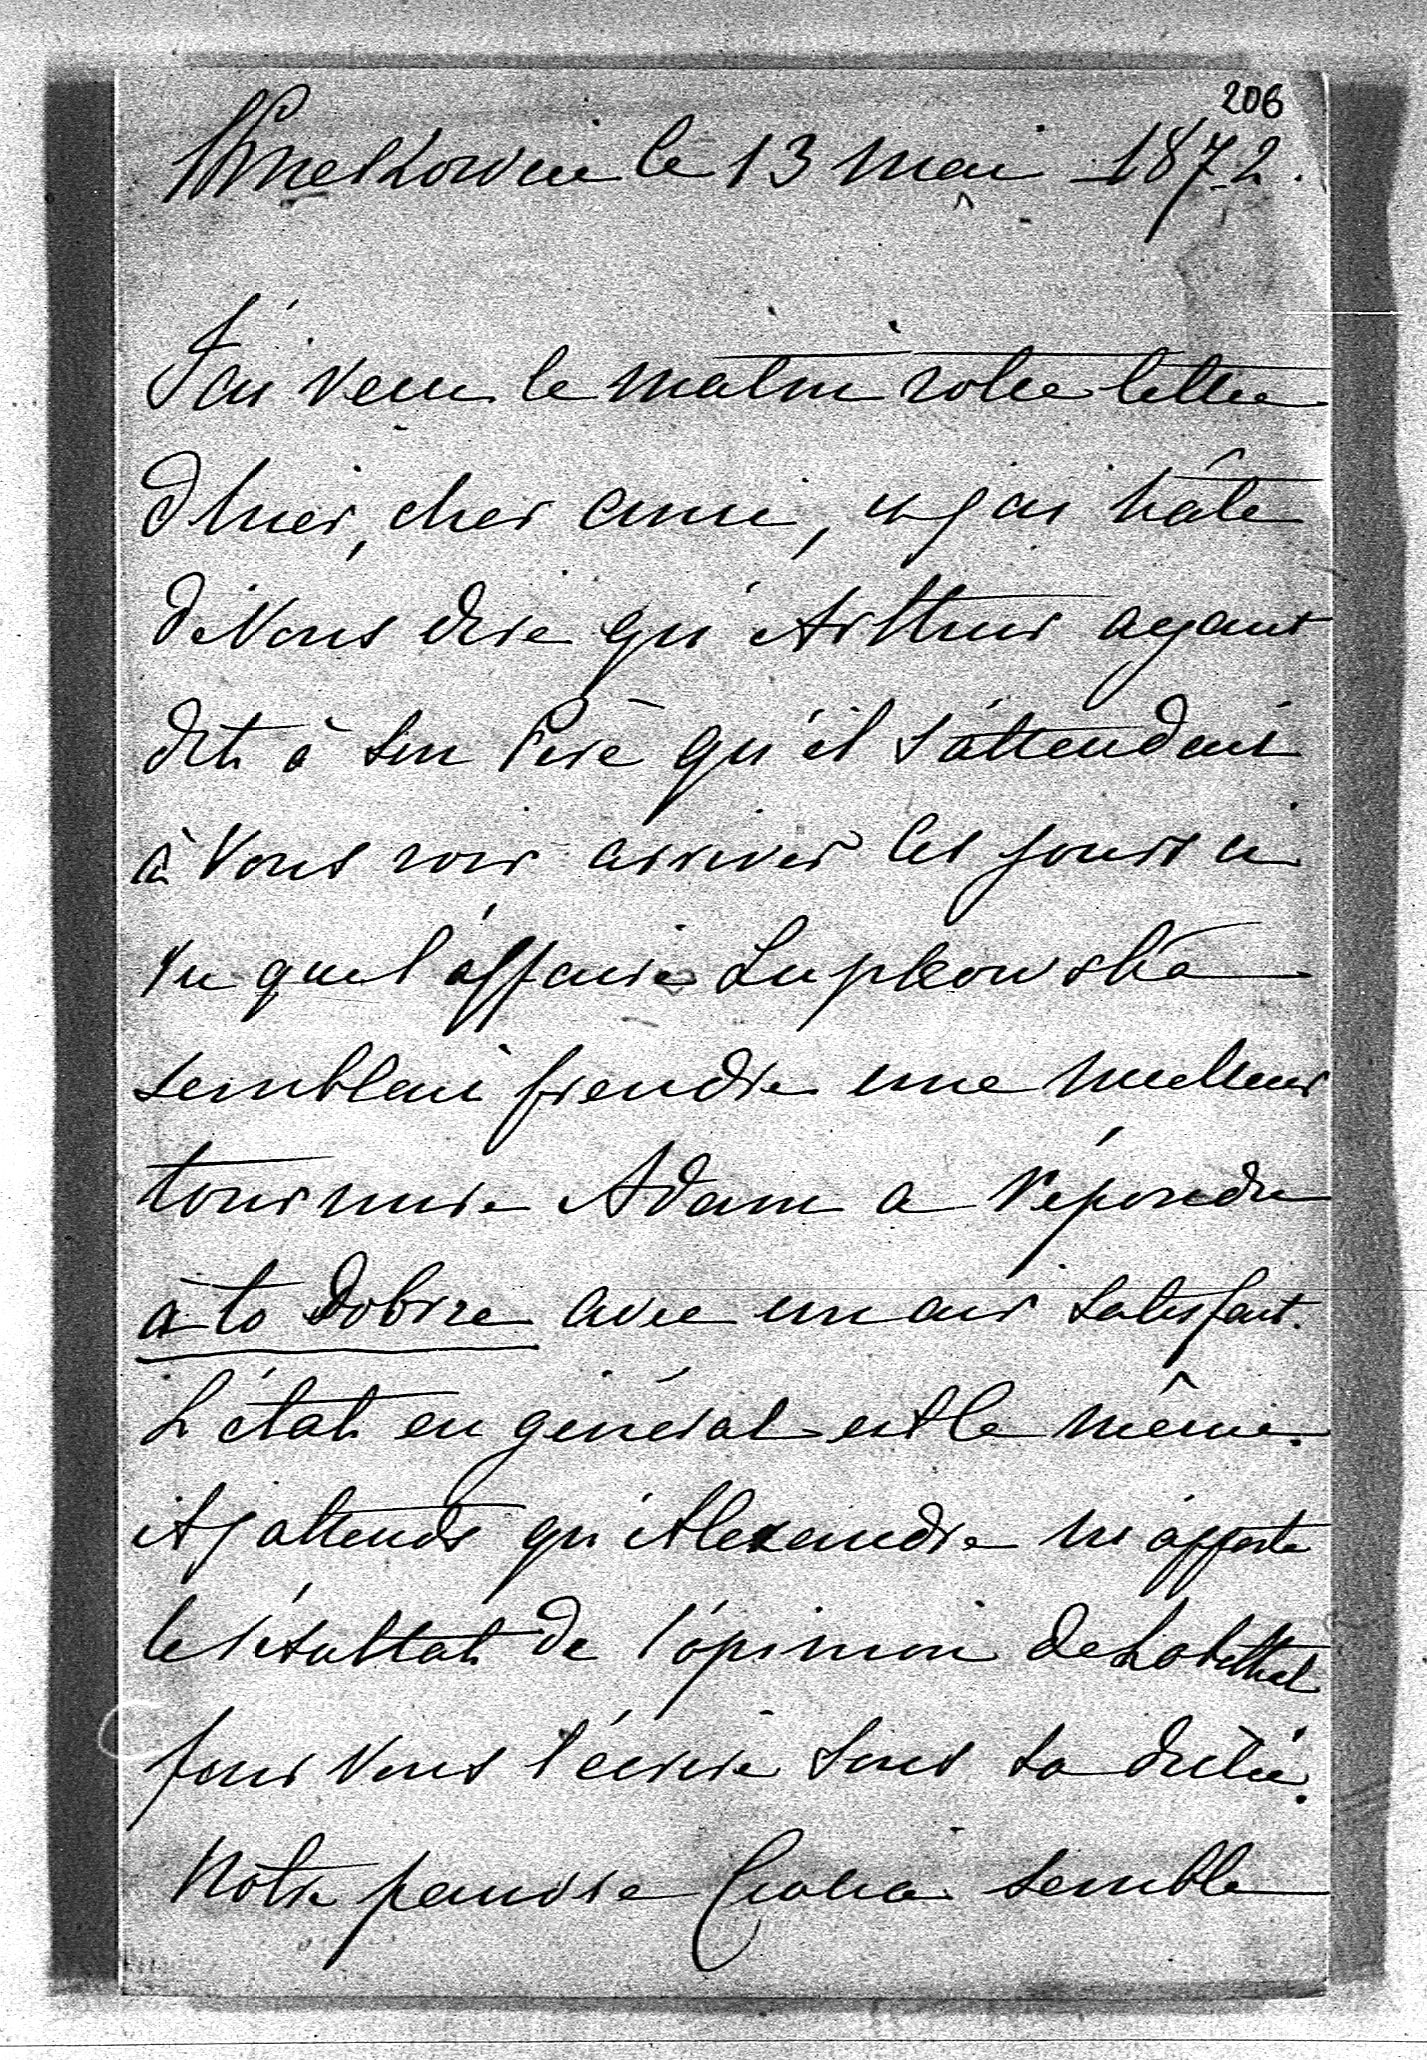 206
Krzeszowice le 13 mai 1872.
J'ai reçu le matin votre lettre
d'hier, cher ami, et j'ai hâte
de Vous dire qu'Arthur ayant
dit à son Père qu'il s'attendait
à Vous voir arriver ces jours ci
vu que l'affaire Lupkowska
semblait prendre une meilleure
tournure Adam a répondu
a to Dobrze avec un air satisfait.
L'état en général est le même.
Et j'attends qu'Alexandre m'apporte
le résultat de l'opinion de
pour Vous l'écrire sous sa dictée.
Notre pauvre semble